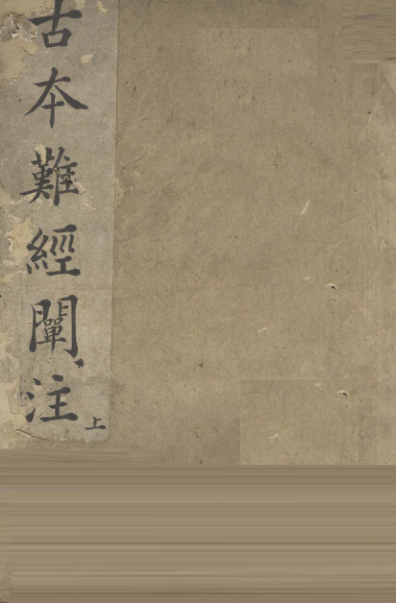 古本難經闡注上